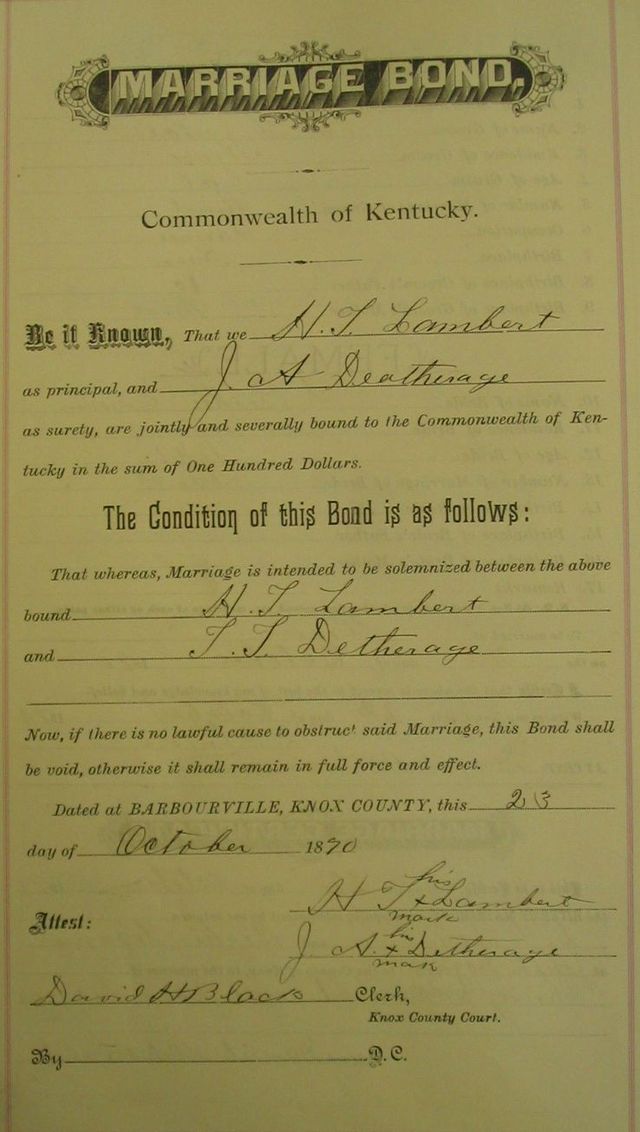 MARRIAGE BOND,
Commonwealth of Kentucky.
Be it Known, That we H. T. Lambert
as principal, and J. A Deatherage
as surety, are jointly and severally bound to the Commonwealth of Ken-
tucky in the sum of One Hundred Dollars.
The Condition of this Bond is as follows:
That whereas, Marriage is intended to be solemnized between the above
bound H. T. Lambert
and T. T. Detherage
Now, if there is no lawful cause to obstruct said Marriage, this Bond shall
be void, otherwise it shall remain in full force and effect.
Dated at BARBOURVILLE, KNOX COUNTY, this 23
day of October 1890
his
H T x Lambert
mark
Attest:
his
J A. x Detherage
mark
David H Black Clerk,
Knox County Court.
By D. C.